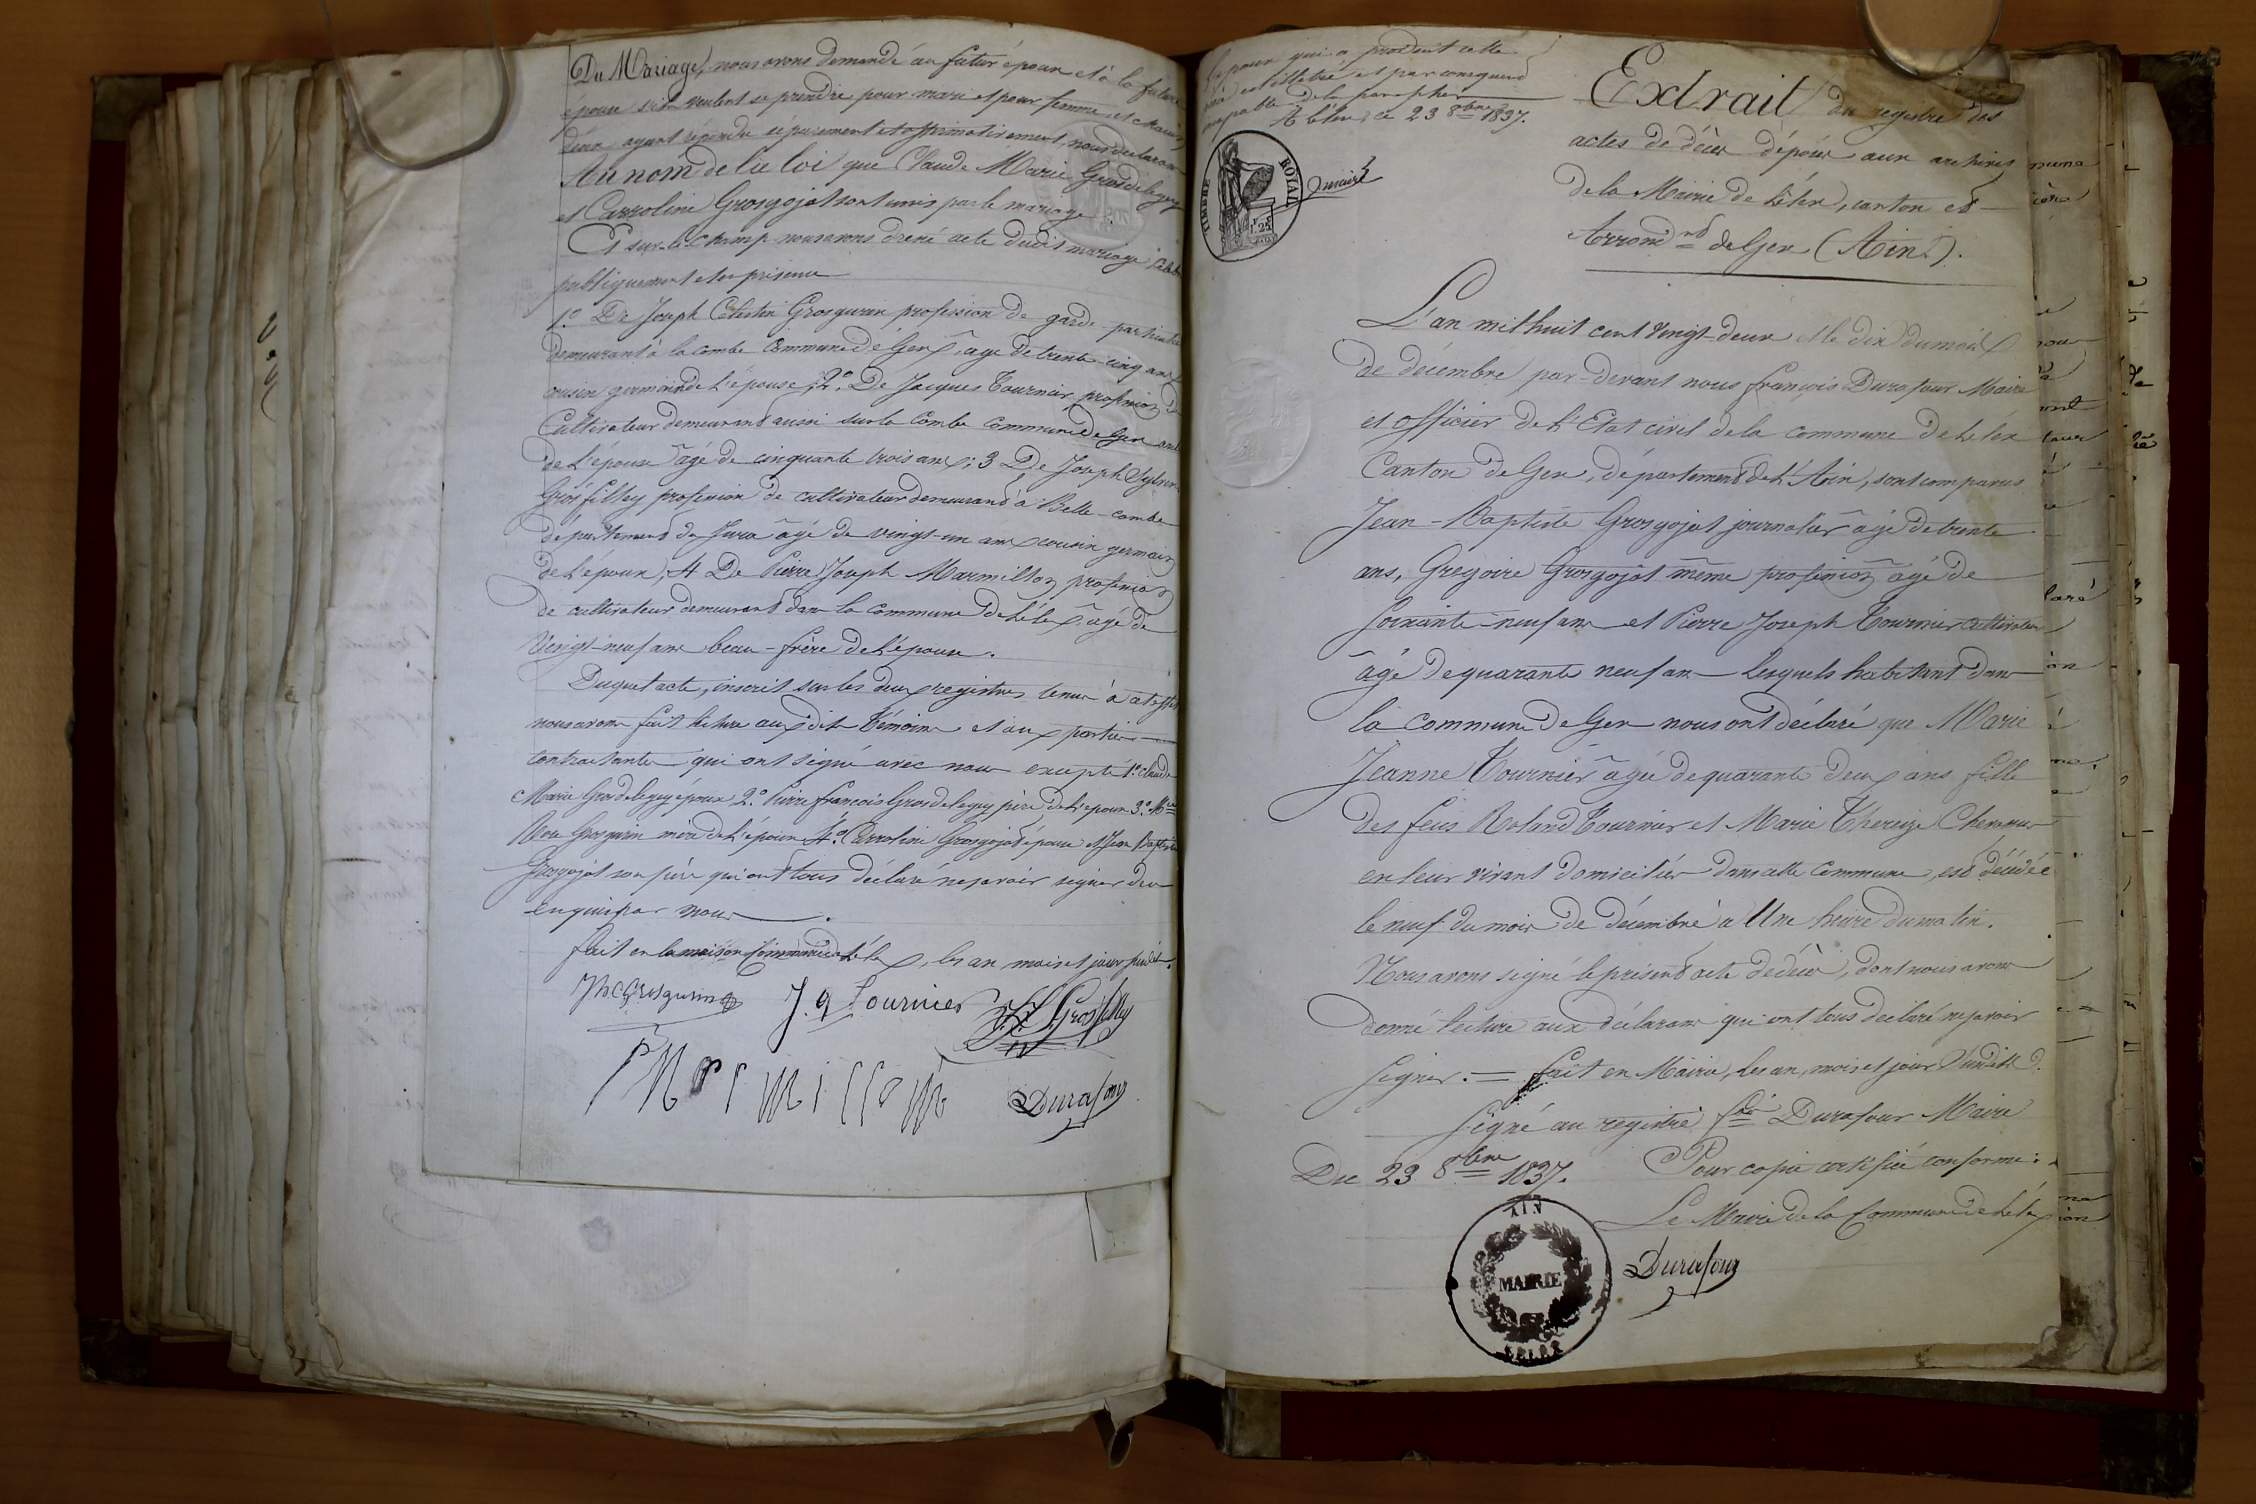 Du Mariage, nous avons demandé au futur époux et à la future
épouse s'ils veulent se prendre pour mari et pour femme, et chacun
d'eux ayant répondu séparément et affirmativement, nous déclarons
Au nom de la loi que Claude Marie Grosdelegey
et Carroline Grosgojat sont unis par le mariage.
Et sur-le-champ nous avons dressé acte dudit mariage
publiquement et en présence
1.º De Joseph Célestin Grosgurin profession de garde-particulier
demeurant à la combe Commune de Gex, âgé de trente-cinq ans
cousin germain de l'épouse; 2.º De Jacques Tournier, profession de
Cultivateur demeurant aussi sur la Combe Commune de Gex ami
de l'époux âgé de cinquante trois ans; 3 De Joseph Sylvain
Grosfilley profession de cultivateur demeurant à Belle-combe
département du Jura âgé de vingt-un ans cousin germain
de l'époux, 4 De Pierre Joseph Marmillon profession
de cultivateur demeurant dans la commune de Lélex âgé de
Vingt-neuf ans beau-frère de l'époux.
Duquel acte, inscrit sur les deux registres tenus à cet effet
nous avons fait lecture aux dits Témoins et aux parties
contractantes qui ont signé avec nous excepté 1.º Claude
Marie Grosdelegey époux 2.º Pierre François Grosdelegey père de l'époux 3.º Mie
Grosgurin mère de l'époux 4.º Carroline Grosgojat épouse et Jean Baptiste
Grosgojat son père qui ont tous déclaré ne savoir signer de ce
enquis par nous.
fait en la maison Commune de Lélex, les an mois et jour susdits.
Jh C Grosgurin J. q Tournier J. S. Grosfilley
PMarmillon Durafour
L'époux qui a produit cette
est illetré et par conséquent
incapable de la parapher
A Lélex, ce 23 8bre 1837.
maire
TIMBRE ROYAL
1f 25c
Extrait du registre des
actes de décès déposés aux archives
de la Mairie de Lélex, canton et
Arrond.nt de Gex (Ain).
L'an mil huit cent vingt-deux et le dix du mois
de décembre par-devant nous François Durafour Maire
et officier de l'Etat civil de la commune de Lélex
Canton de Gex, département de l'Ain, sont comparus
Jean-Baptiste Grosgojat journalier âgé de trente
ans, Grégoire Grosgojat même profession âgé de
soixante-neuf ans et Pierre Joseph Tournier cultivateur
âgé de quarante neuf ans Lesquels habitant dans
la commune de Gex nous ont déclaré que Marie
Jeanne Tournier âgée de quarante deux ans fille
des feus Roland Tournier et Marie Thereize
en leur vivant domiciliés dans cette Commune, est décédée
le neuf du mois de décembre à Une heure du matin.
Nous avons signé le présent acte de décès, dont nous avons
donné lecture aux déclarans qui ont tous déclaré ne savoir
signer. = fait en Mairie, les an, mois et jour susdits.
Signé au registre fçois Durafour Maire
Du 23 8bre 1837. Pour copie certifiée conforme:
Le Maire de la Commune de Lélex
AIN
MAIRIE
LELEX
Durafour